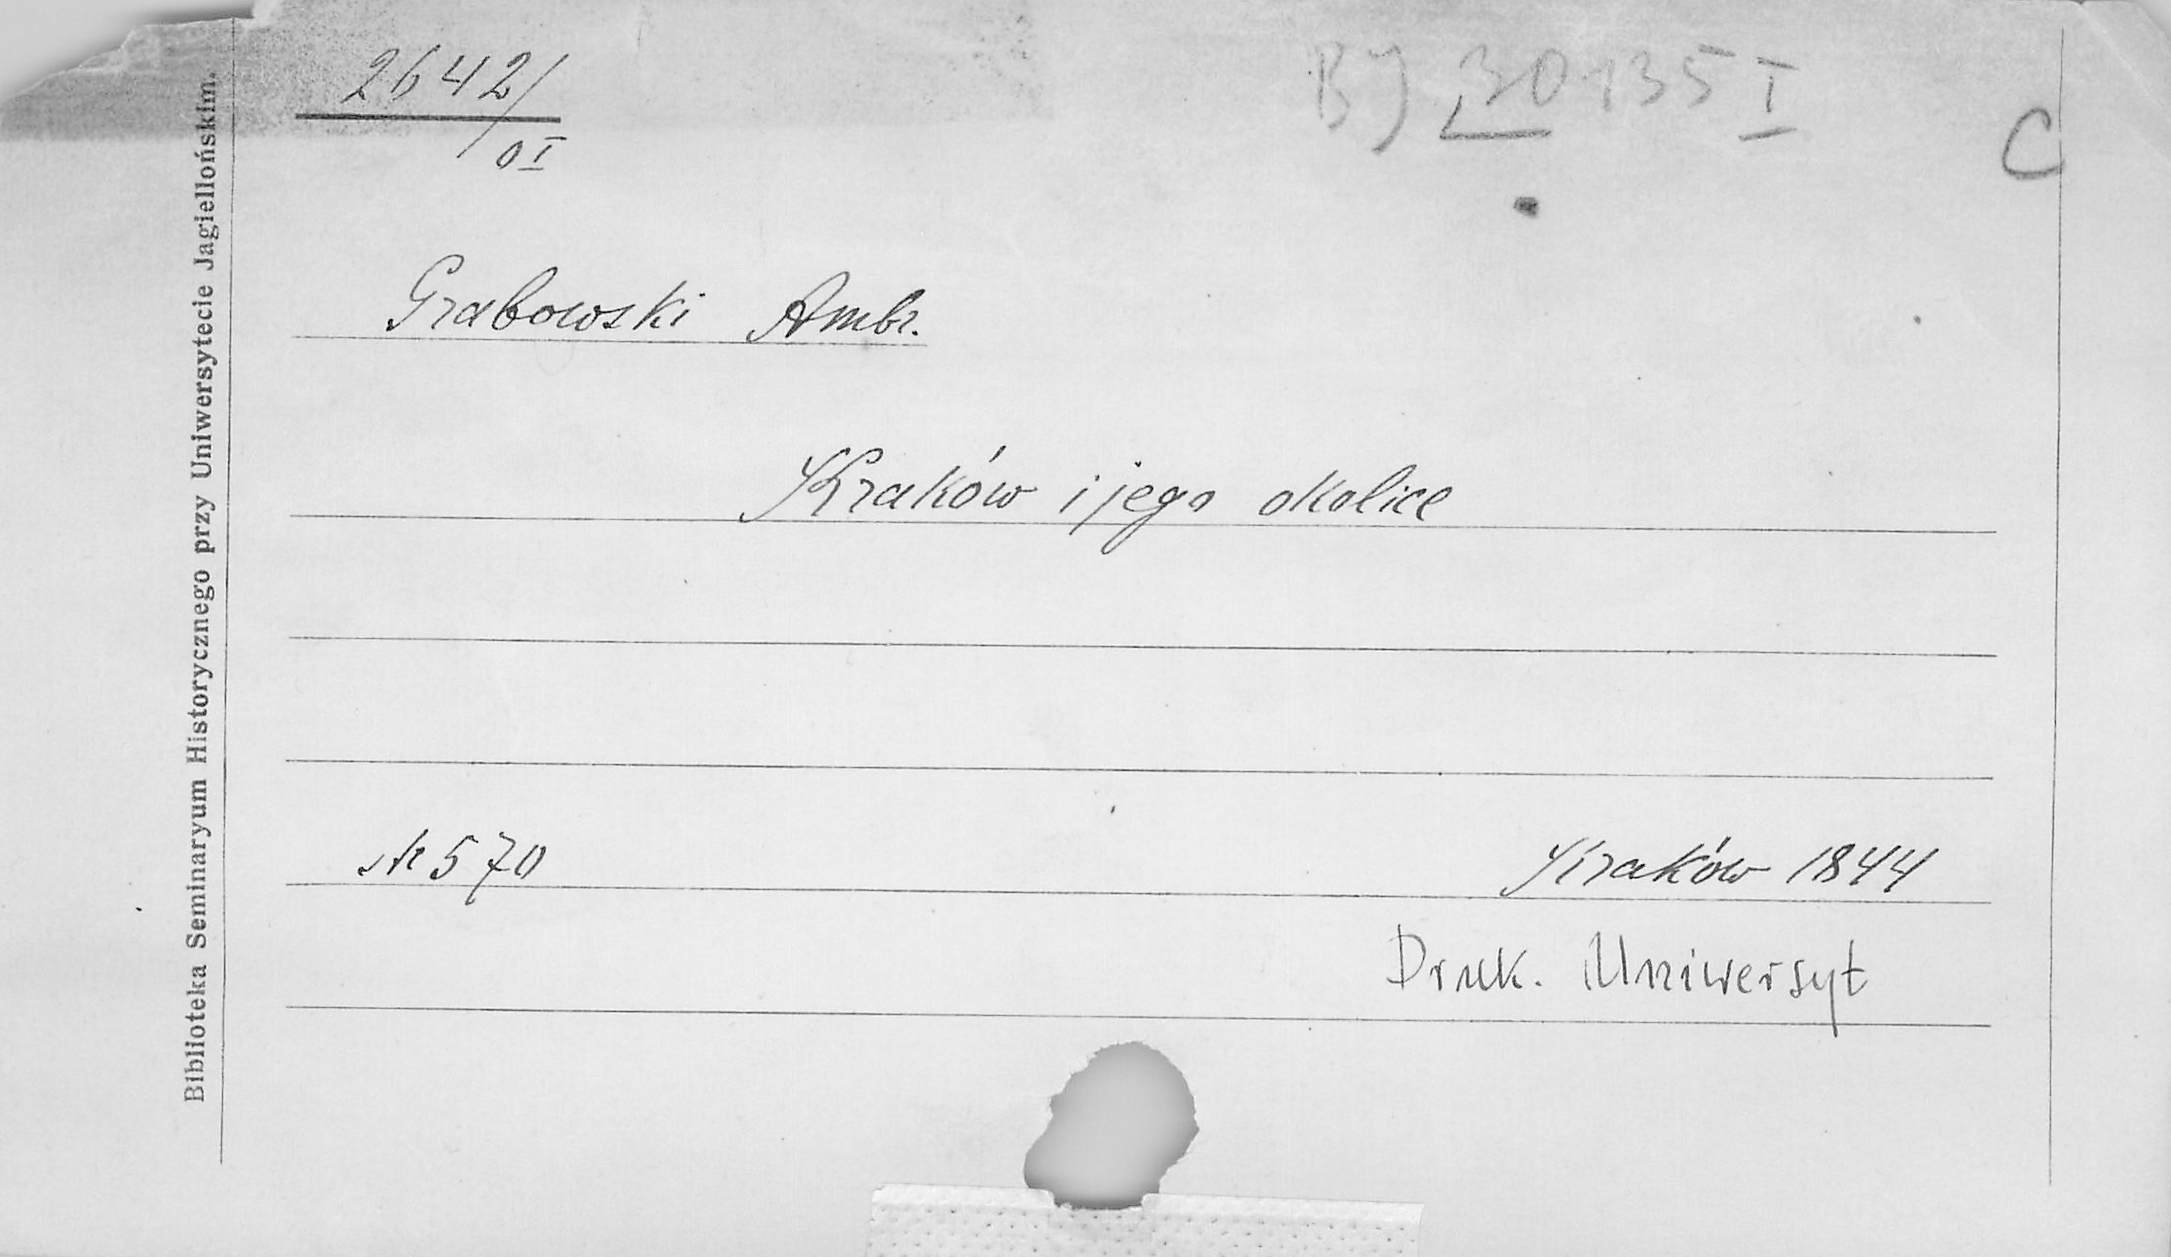 2642/
0I
BJ 30135 I
C
Grabowski Ambr.
Kraków i jego okolice
str 570
Kraków 1844
Druk. Uniwersyt
Biblioteka Seminaryum Historycznego przy Uniwersytecie Jagiellońskim.